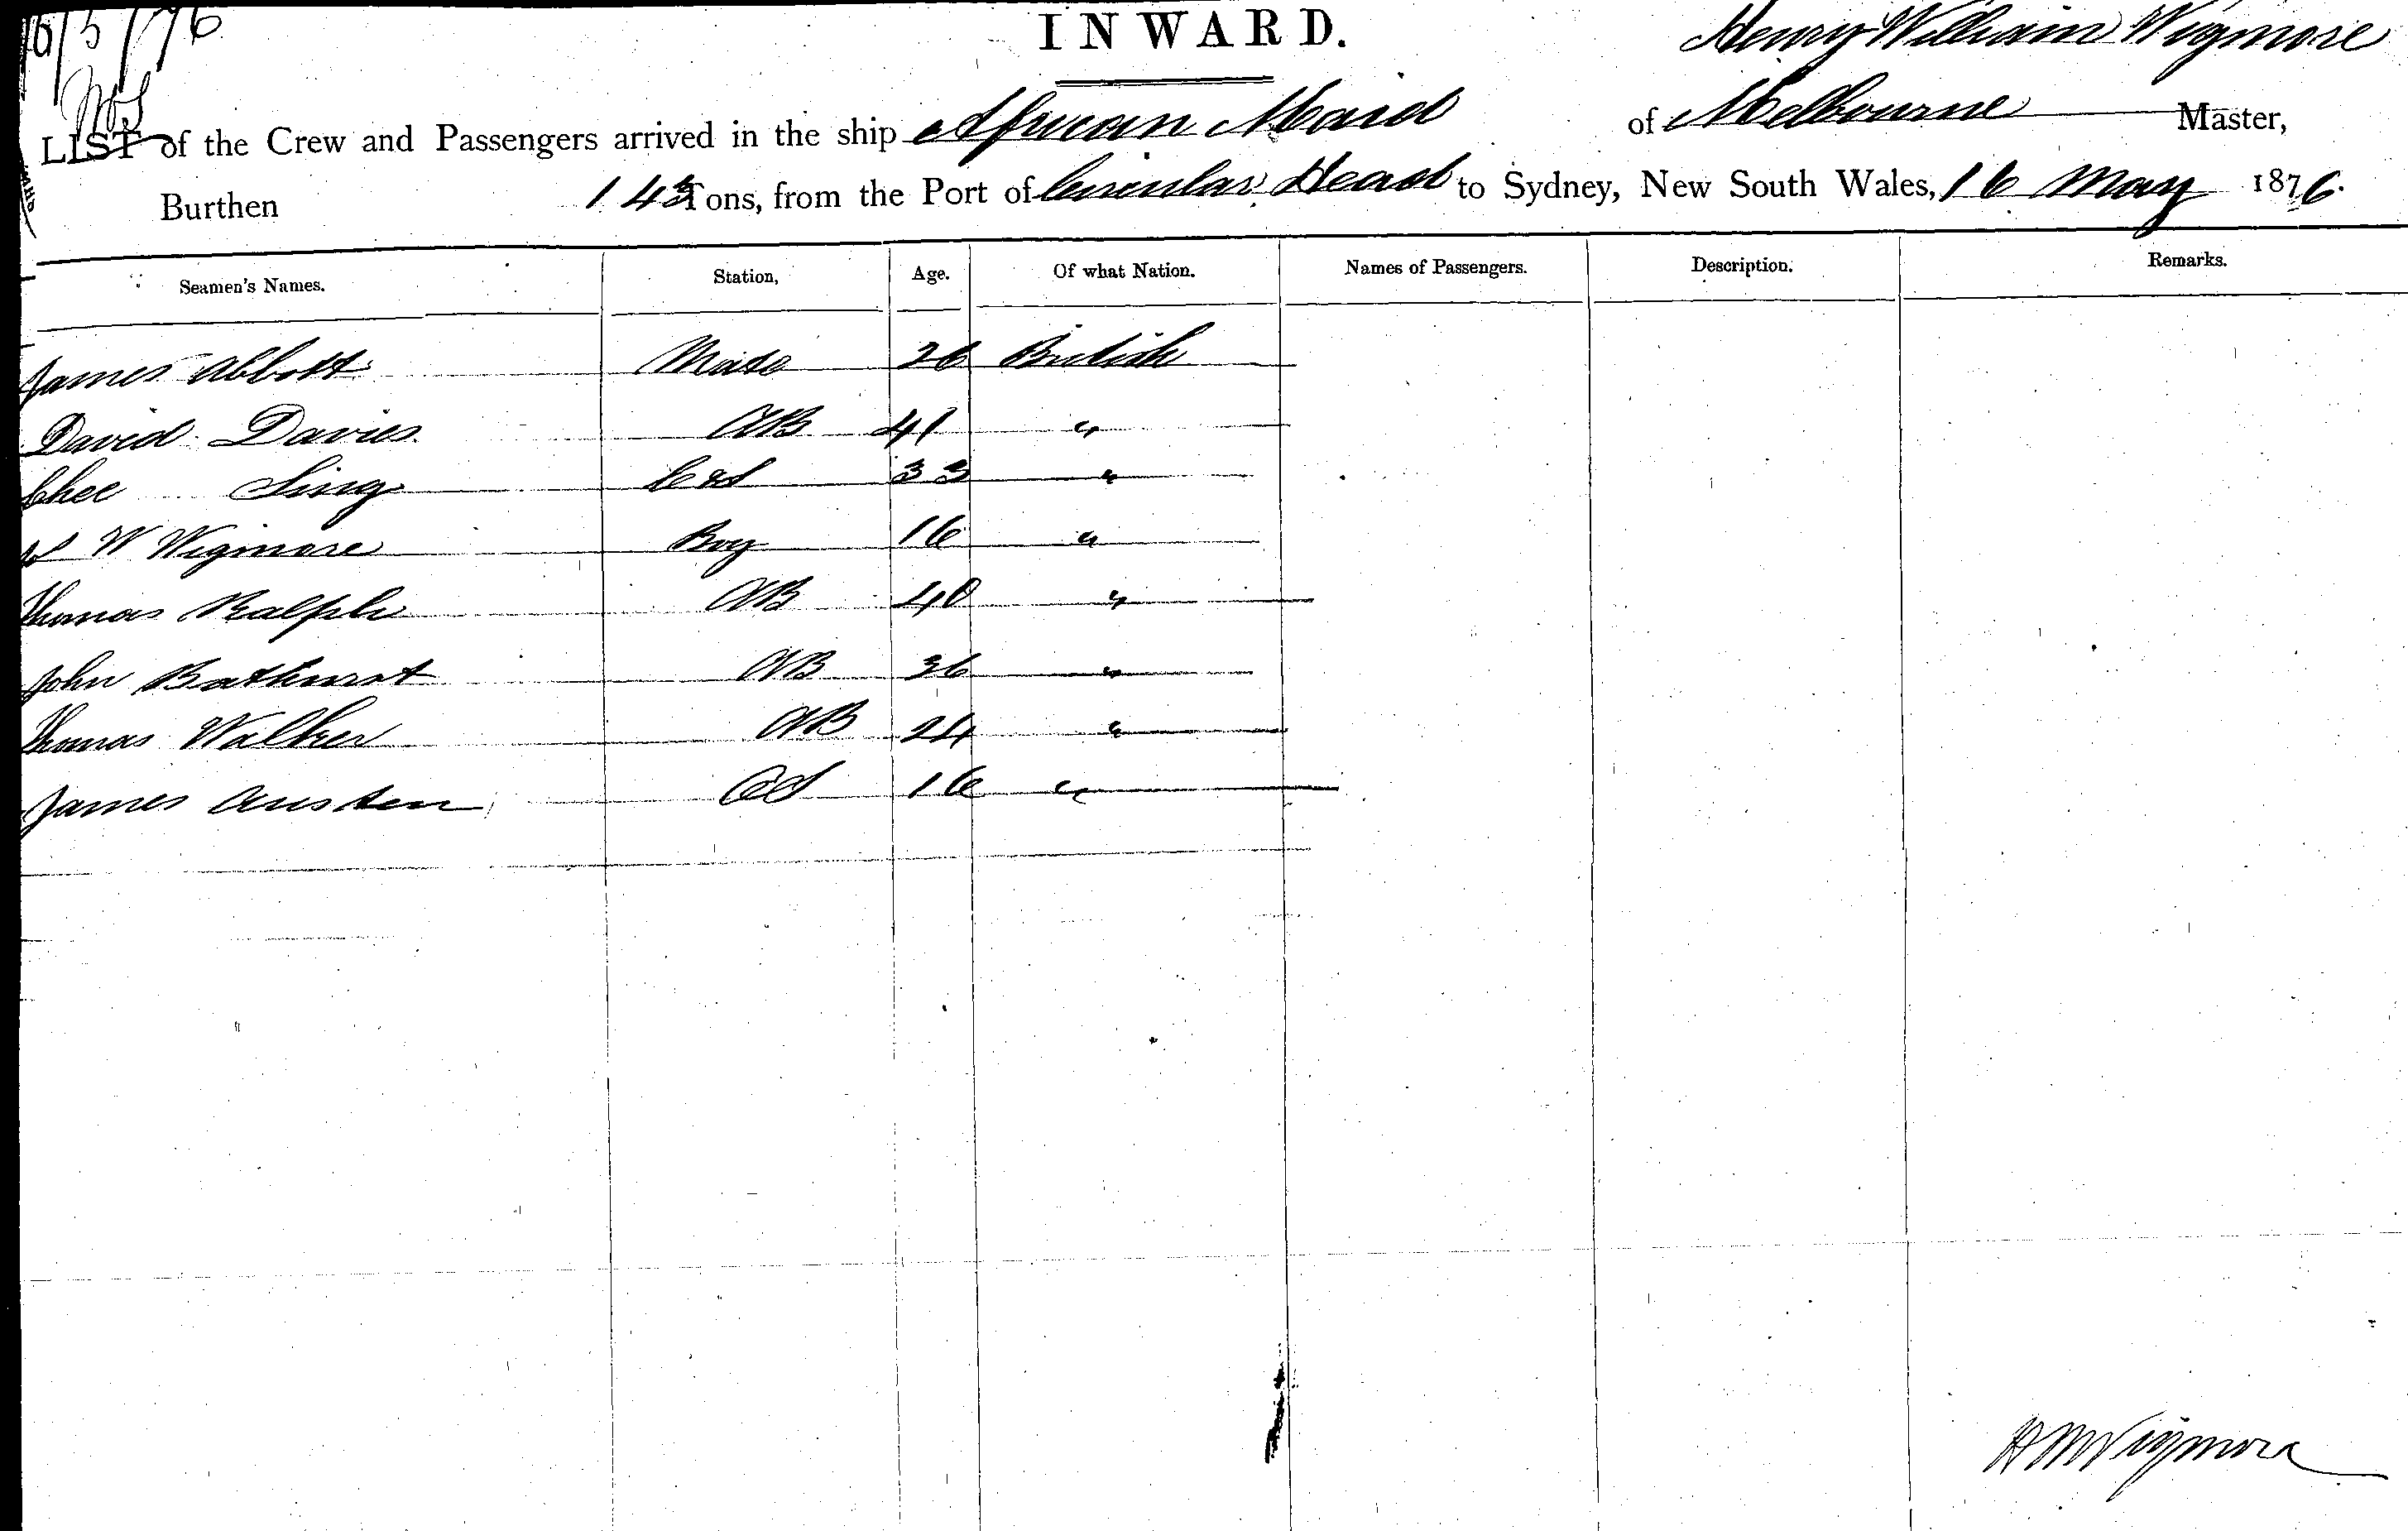 16/5/76
INWARD.
Henry William Wigmore
LIST of the Crew and Passengers arrived in the ship African Maid of Melbourne Master,
Burthen 143 Tons, from the Port of Circular Head to Sydney, New South Wales, 16 May 1876.
Seamen's Names. Station, Age. Of what Nation. Names of Passengers. Description. Remarks.
James Abbott Mate 26 British
David Davies AB 41 "
Chee Sing 33 "
W Wigmore Boy 16 "
Thomas Ralph AB 40 "
John Bathurst AB 36 "
Thomas Walker AB 24 "
James Austen OS 16 "
HWWigmore